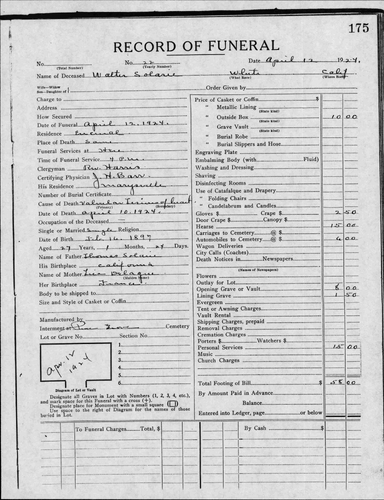 175
RECORD OF FUNERAL
No.
(Total Number)
No. 22
(Yearly Number)
Date April 12 1924,
Name of Deceased Walter Solarie
White
(What Race)
Calif
(Where Born)
Order Given by
Charge to
Address
How Secured
Date of Funeral April 12, 1924.
Residence
Place of Death Same
Funeral Services at Here
Time of Funeral Service 9 P.M.
Clergyman Rev. Harris
Certifying Physician J. H. Barr
His Residence Marysville
Number of Burial Certificate
Cause of Death Valvular of heart
Date of Death April 10, 1924.
Occupation
Single or Married Single Religion
Date of Birth Feb. 14, 1897
Aged 27 Years, 1 Months, 25 Days
Name of Father Thomas Solarie
His Birthplace California
Name of Mother
(Maiden Name)
Her Birthplace France
Body to be shipped to
Size and Style of Casket or Coffin
Manufactured by
Interment at Pine Grove Cemetery
Lot or Grave No. Section No.
Apr. 12
1924
1
2
3
4
5
6
7
Diagram of Lot or Vault
Designate all Graves in Lot with Numbers (1, 2, 3, 4, etc.),
and mark space for this Funeral with a cross (+)
Designate place for Monument with a small square
Use space to the right of Diagram for the names of those
buried in Lot.
Price of Casket or Coffin $
" Metallic Lining
" Outside Box 10 00
" Grave Vault
" Burial Robe
" Burial Slippers and Hose
Engraving Plate
Embalming Body (with Fluid)
Washing and Dressing
Shaving
Disinfecting Rooms
Use of Catafalque and Drapery
" Folding Chairs
" Candelabrum and Candles
Gloves $ Crape $ 2 50
Door Crape $ Canopy $
Hearse 15 00
Carriages to Cemetery @ $
Automobiles to Cemetery @ $ 6 00
Wagon Deliveries
City Calls (Coaches)
Death Notices in Newspapers
(Names of Newspapers)
Flowers
Outlay for Lot
Opening Grave or Vault 8 00
Lining Grave 1 50
Evergreen
Tent or Awning Charges
Vault Rental
Shipping Charges, prepaid
Removal Charges
Cremation Charges
Porters $ Watchers $
Personal Services 15 00
Music
Church Charges
Total Footing of Bill $ 58 00
By Amount Paid in Advance
Balance
Entered into Ledger, page or below
To Funeral Charges Total $
By Cash $